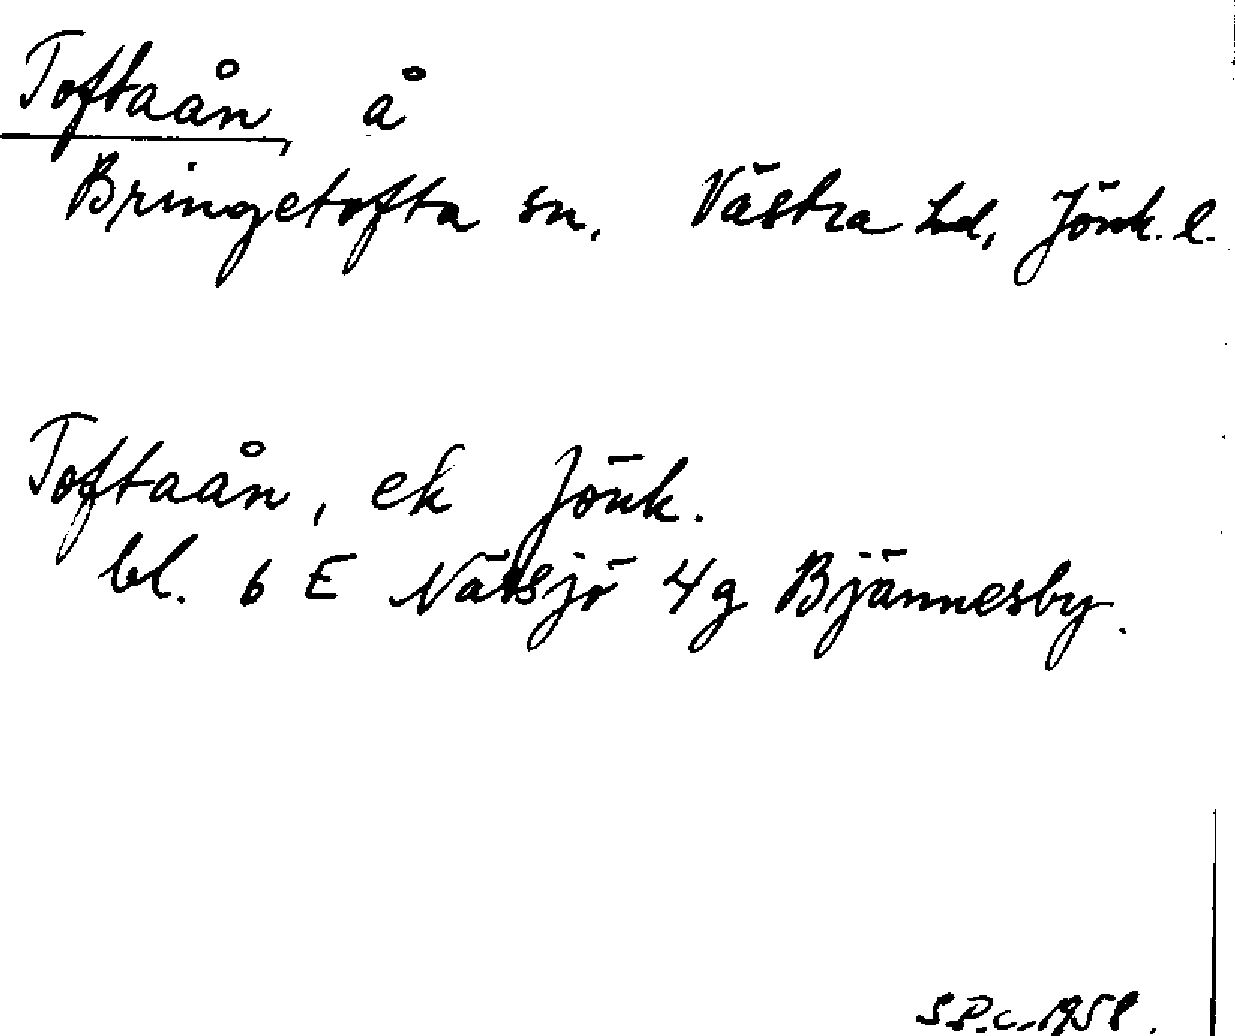 Toftaån å
Bringetofta sn, Västra hd, Jönk. l.
Toftaån, ek Jönk.
bl. 6 E Nässjö 4g Bjännesby.
1958.